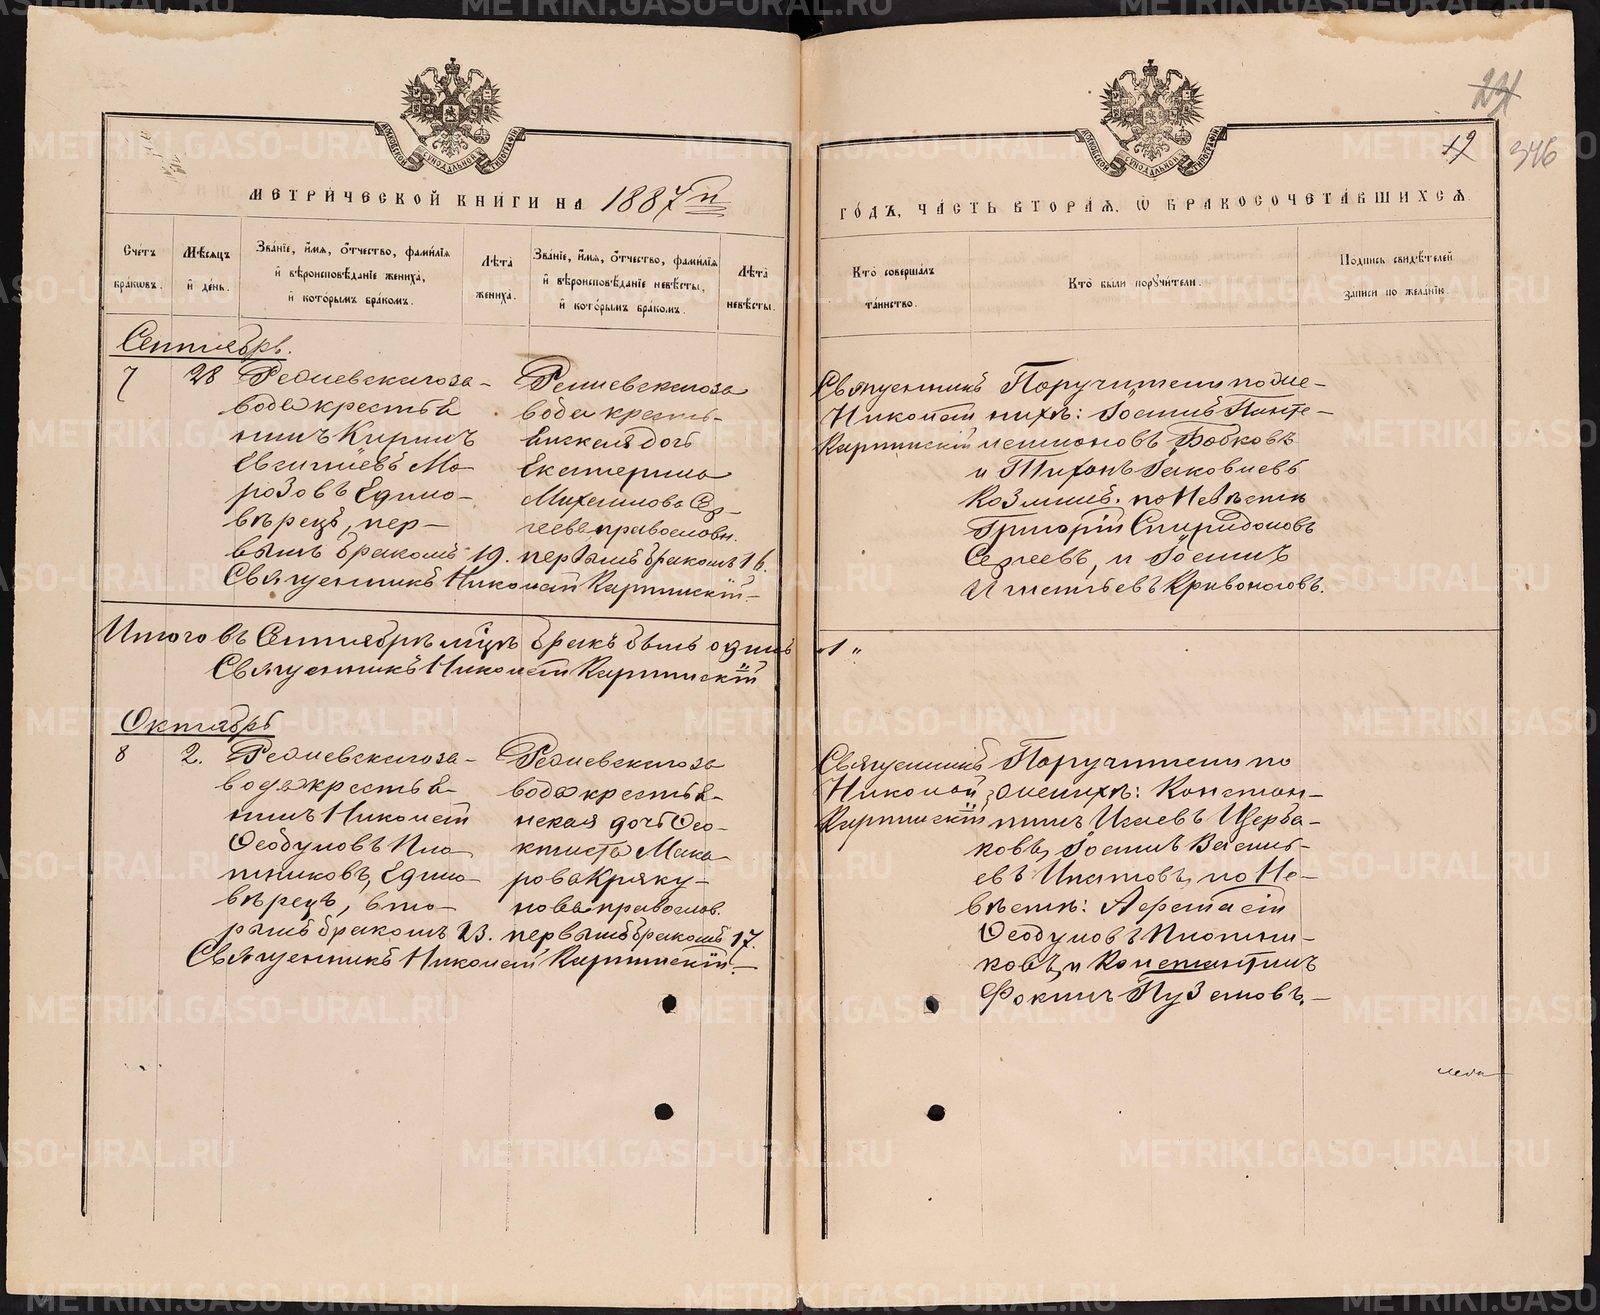 231
12
346
МЕТРИЧЕСКОЙ КНИГИ НА 1887й
Счетъ браковъ.
Мѣсяцъ и день.
Званіе, имя, отчество, фамилія
и вѣроисповѣданіе жениха,
и которымъ бракомъ.
Лѣта жениха.
Званіе, имя, отчество, фамилія
и вѣроисповѣданіе невѣсты,
и которымъ бракомъ.
Лѣта невѣсты.
Сентябрь.
7
28
Режевскаго за-
вода крестья
нинъ Кириллъ
Мо-
розовъ Едино-
вѣрецъ, пер-
вымъ бракомъ
19.
Режевскаго за
вода кресть-
янская дочь
Екатерина
Михаилова Сер-
геева православн.
первымъ бракомъ
16.
Священникъ Николай Карпинскій.
Итого въ Сентябрѣ м-цѣ бракъ былъ одинъ
Священникъ Николай Карпинскій
Октябрь
8
2.
Режевскаго за-
вода крестья-
нинъ Николай
Ѳеодуловъ Пло
тниковъ, Едино-
вѣрецъ, вто-
рымъ бракомъ
23.
Режевскаго за
вода крестья-
нская дочь Ѳео-
ктиста Мака-
рова Кряку-
нова православ.
первымъ бракомъ
17.
Священникъ Николай Карпинскій.
ГОДЪ, ЧАСТЬ ВТОРАЯ, Ѡ БРАКОСОЧЕТАВШИХСЯ.
Кто совершалъ таинство.
Кто были поручители.
Подпись свидѣтелей
записи по желанію.
Священникъ
Николай
Карпинскій
Поручители по же-
нихѣ: Іоаннъ Панте-
леимоновъ Бобковъ
и Тихонъ Іаковлевъ
Козминъ. по Невѣстѣ
Григорій Спиридоновъ
Сергеевъ, и Іоаннъ
Игнатьевъ Кривоноговъ.
„1„
Священникъ
Николай
Карпинскій
Поручители по
женихѣ: Констан-
тинъ Исаевъ Щерба-
ковъ, Іоаннъ Василь-
евъ Ипатовъ, по Не-
вѣстѣ: Аѳанасій
Ѳеодуловъ Плотни-
ковъ, и Константинъ
Фокинъ Пузановъ.
МОСКОВСКОЙ СИНОДАЛЬНОЙ ТИПОГРАФІИ
МОСКОВСКОЙ СИНОДАЛЬНОЙ ТИПОГРАФІИ
METRIKI.GASO-URAL.RU